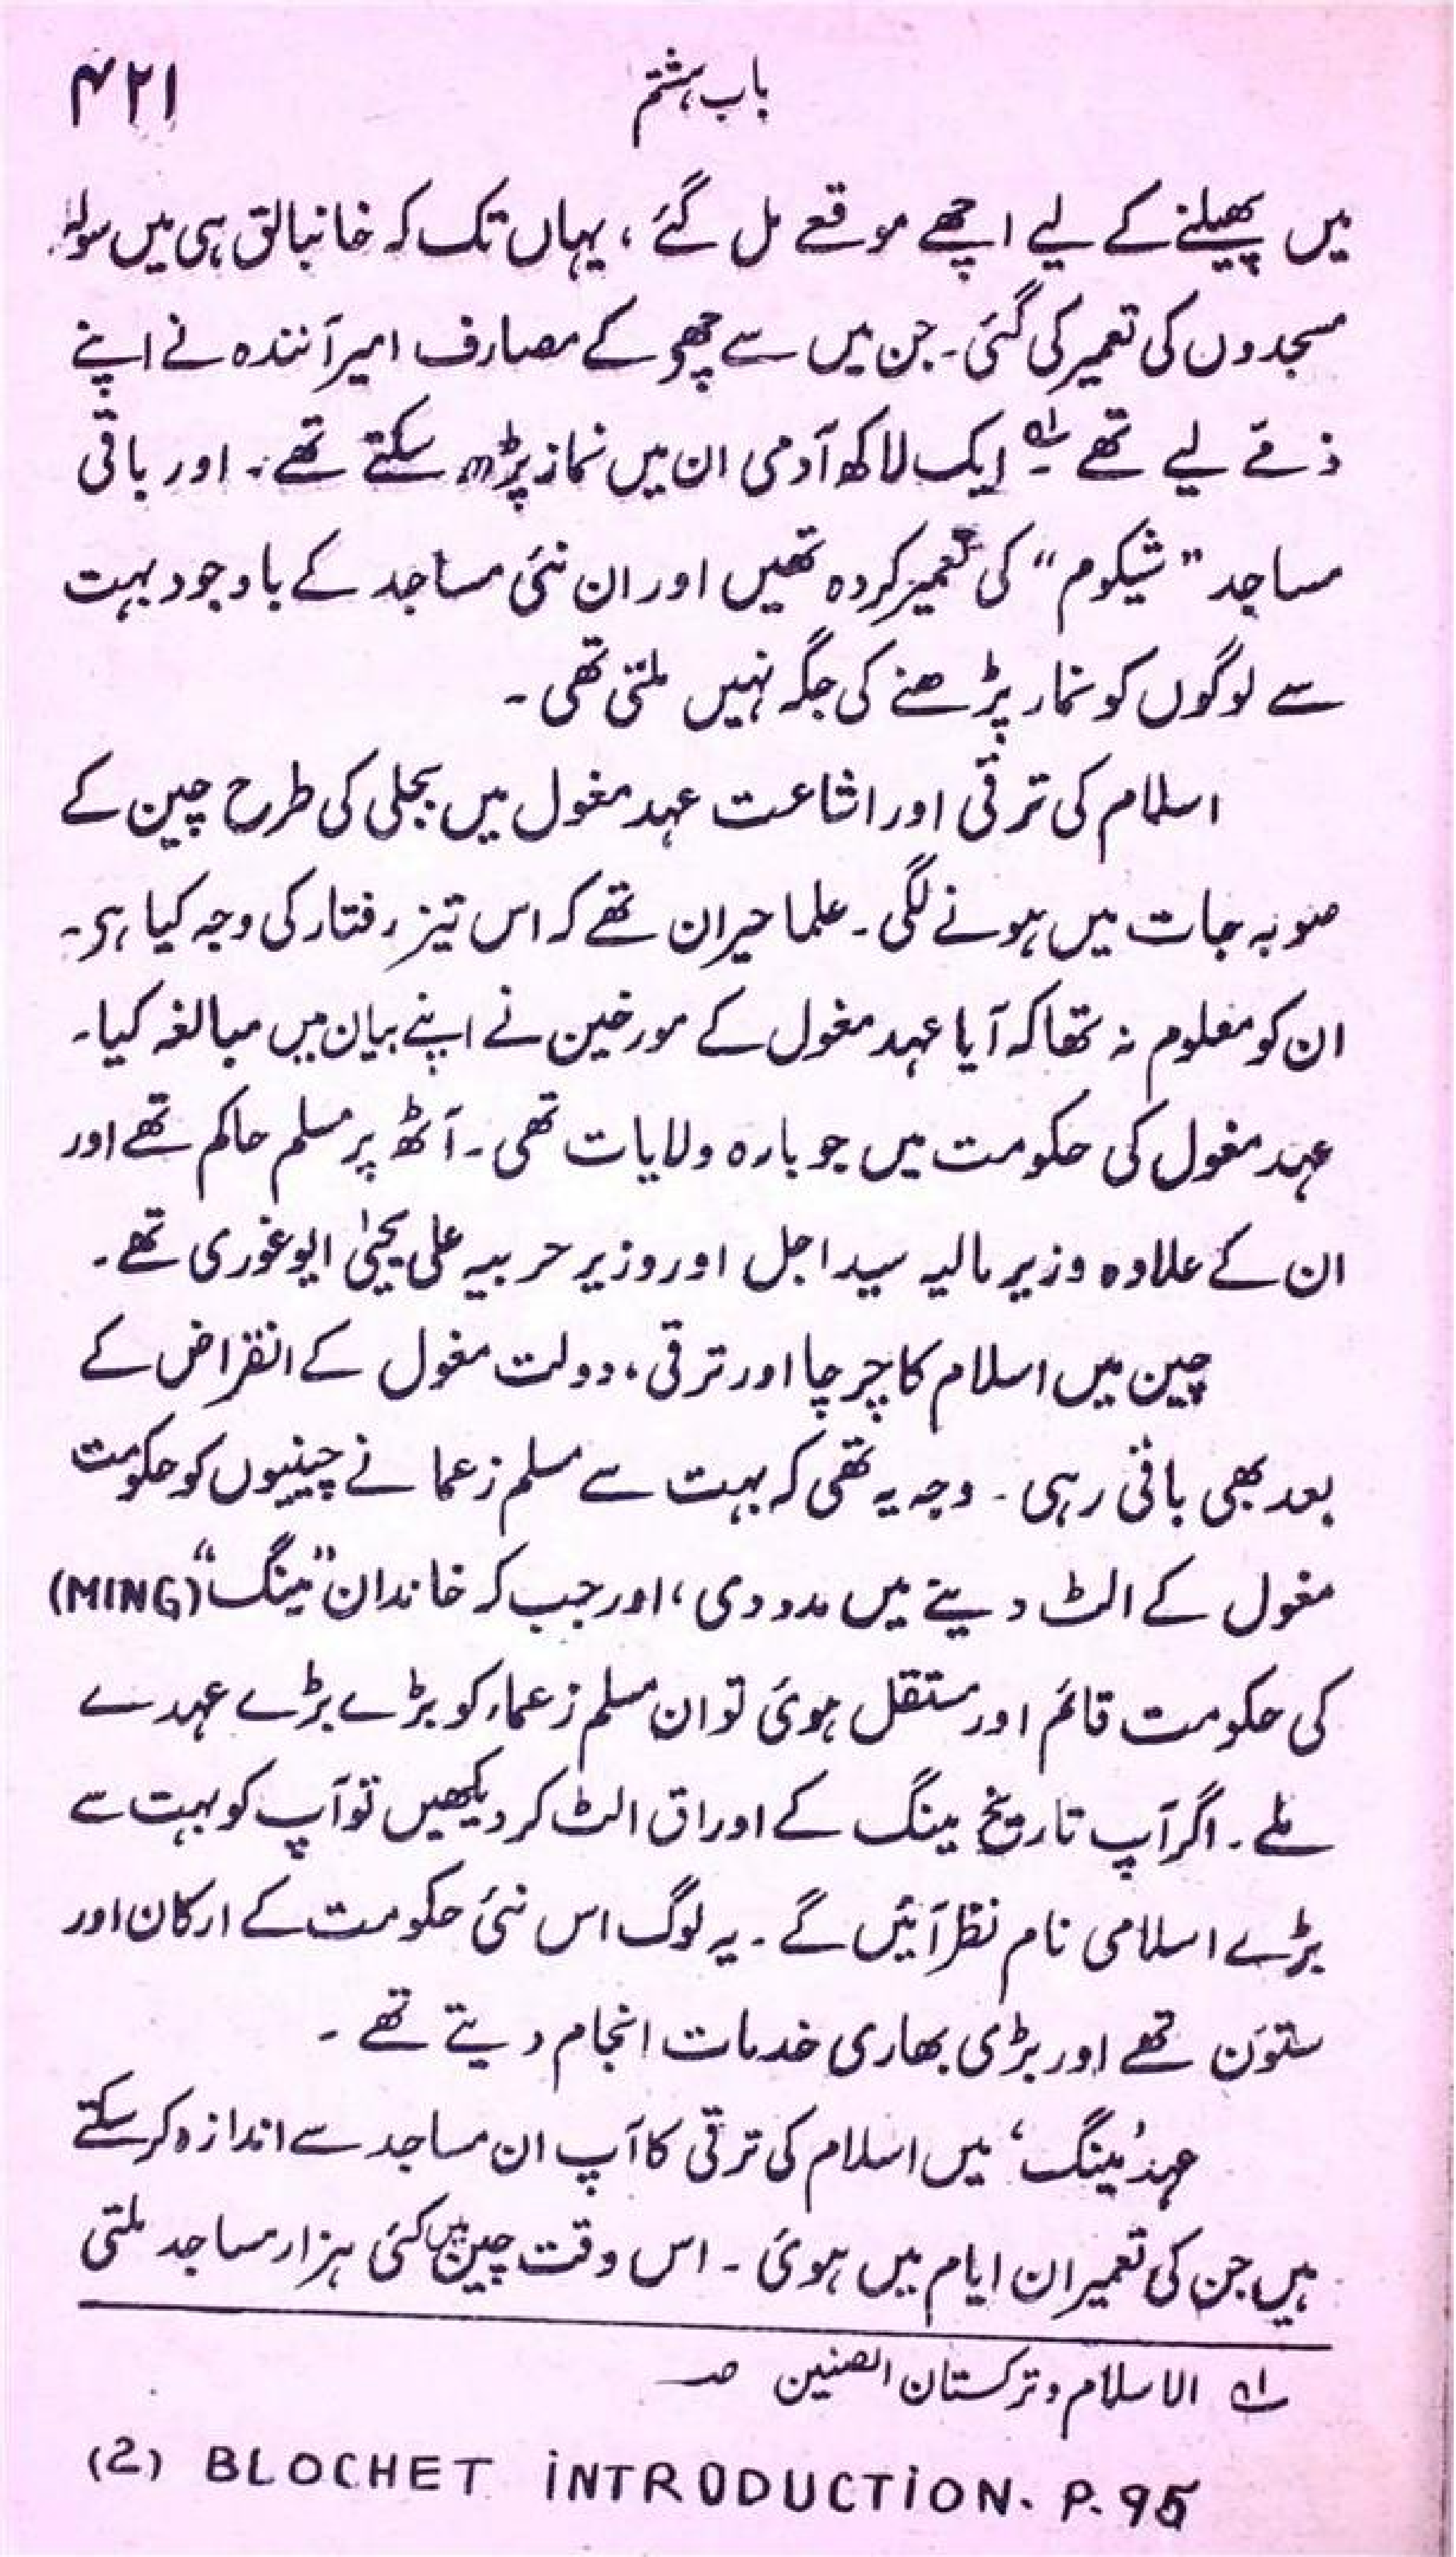 باب ہشتم ۴۲۱
میں پھیلنے کے لیے اچھے موقعے مل گئے، یہاں تک کہ خانبالق ہی میں سولہ
مسجدوں کی تعمیر کی گئی۔ جن میں سے چھو کے مصارف امیر آنندہ نے اپنے
ذمّے لیے تھے ؎۱ ایک لاکھ آدمی ان میں نماز پڑھ سکتے تھے۔ اور باقی
مساجد "شیکوم" کی تعمیر کردہ تھیں اور ان نئی مساجد کے باوجود بہت
سے لوگوں کو نماز پڑھنے کی جگہ نہیں ملتی تھی۔
اسلام کی ترقی اور اشاعت عہد مغول میں بجلی کی طرح چین کے
صوبہ جات میں ہونے لگی۔ علما حیران تھے کہ اس تیز رفتار کی وجہ کیا ہی۔
ان کو معلوم نہ تھا کہ آیا عہد مغول کے مورخین نے اپنے بیان میں مبالغہ کیا۔
عہد مغول کی حکومت میں جو بارہ ولایات تھی۔ آٹھ پر مسلم حاکم تھے اور
ان کے علاوہ وزیر مالیہ سید اجل اور وزیر حربیہ علی یحییٰ ایوغوری تھے۔
چین میں اسلام کا چرچا اور ترقی، دولت مغول کے انقراض کے
بعد بھی باقی رہی۔ وجہ یہ تھی کہ بہت سے مسلم زعما نے چینیوں کو حکومت
مغول کے الٹ دینے میں مدد دی، اور جب کہ خاندان "مینگ" (MING)
کی حکومت قائم اور مستقل ہوئی تو ان مسلم زعماء کو بڑے بڑے عہدے
ملے۔ اگر آپ تاریخ مینگ کے اوراق الٹ کر دیکھیں تو آپ کو بہت سے
بڑے اسلامی نام نظر آئیں گے۔ یہ لوگ اس نئی حکومت کے ارکان اور
ستون تھے اور بڑی بھاری خدمات انجام دیتے تھے۔
عہد 'مینگ' میں اسلام کی ترقی کا آپ ان مساجد سے اندازہ کر سکتے
ہیں جن کی تعمیر ان ایام میں ہوئی۔ اس وقت چین میں کئی ہزار مساجد ملتی
؎۱ الاسلام و ترکستان الصنین صـ
(2) BLOCHET INTRODUCTION. P. 95